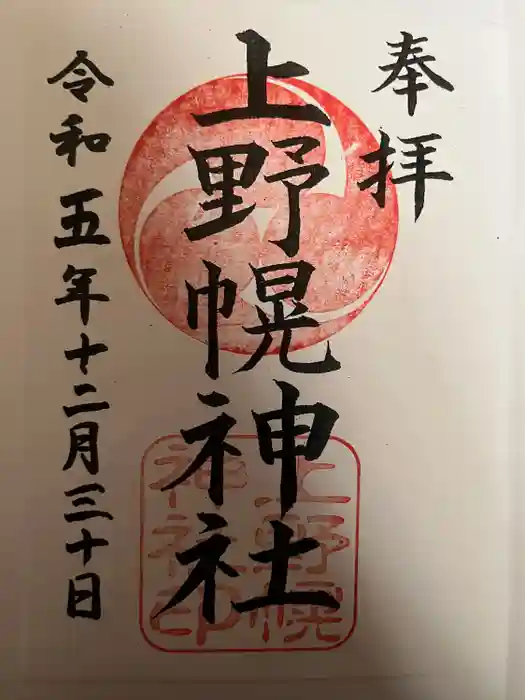 奉拝
上野幌神社
上野幌
神社印
令和五年十二月三十日